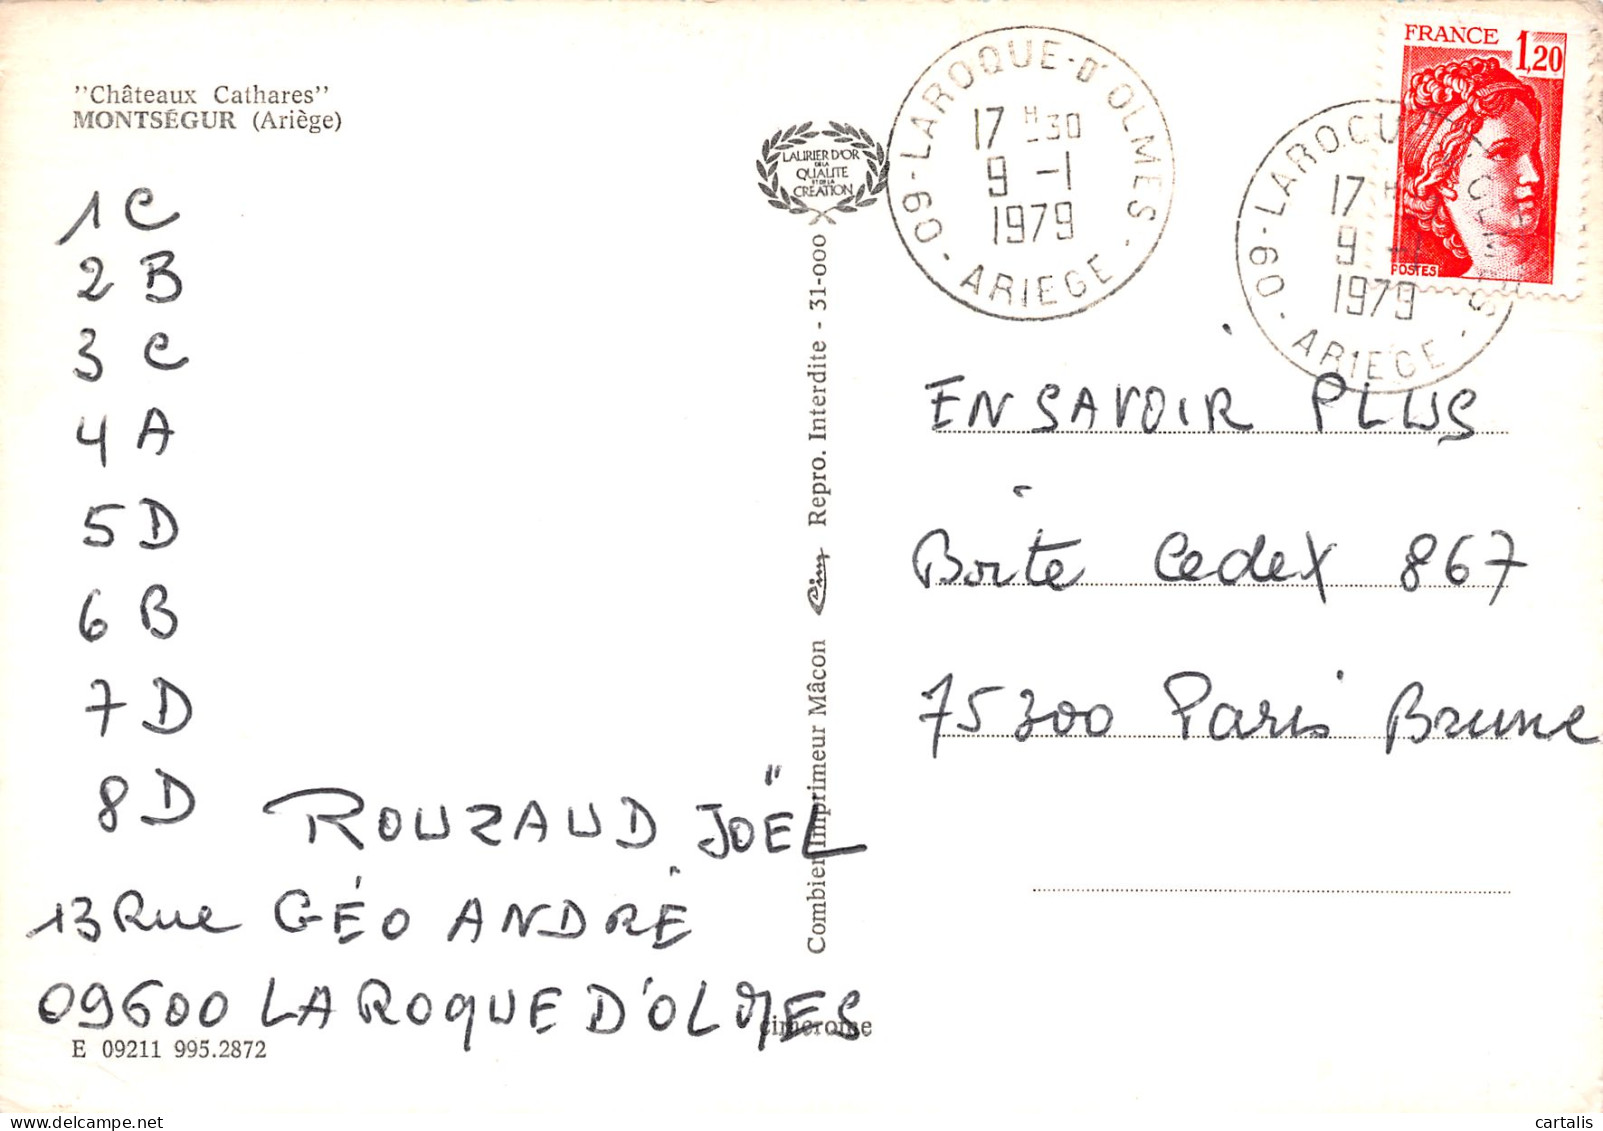 "Châteaux Cathares"
MONTSÉGUR (Ariège)
1 C
2 B
3 C
4 A
5 D
6 B
7 D
8 D
ROUZAUD JOËL
13 Rue GÉO ANDRÉ
09600 LAROQUE D'OLMES
E 09211 995.2872
cimcrome
LAURIER D'OR
DE LA
QUALITE
ET DE LA
CREATION
Combier imprimeur Mâcon Cim Repro. Interdite - 31-000
09-LAROQUE-D'OLMES-
17 H 30
9 -1
1979
ARIEGE
FRANCE 1,20
POSTES
09-LAROQUE-D'OLMES-
17 H
9 -1
1979
ARIEGE
EN SAVOIR PLUS
Boite Cedex 867
75300 Paris Brune
cartalis